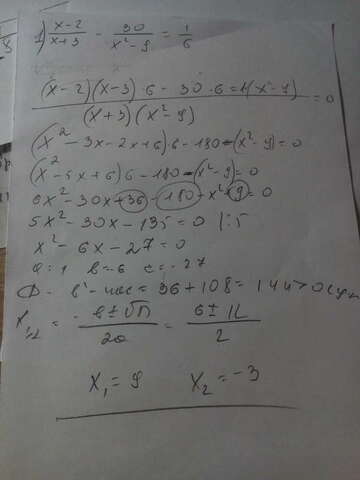 1) x-2/x+3 - 30/x²-9 = 1/6
(x-2)(x-3)·6 - 30·6 = 1(x²-9) / (x+3)(x²-9) = 0
(x² - 3x - 2x + 6) 6 - 180 - (x² - 9) = 0
(x² - 5x + 6) 6 - 180 - (x² - 9) = 0
6x² - 30x + 36 - 180 - x² + 9 = 0
5x² - 30x - 135 = 0 |:5
x² - 6x - 27 = 0
a = 1 b = -6 c = -27
D = b² - 4ac = 36 + 108 = 144 > 0
x₁,₂ = -b ± √D / 2a = 6 ± 12 / 2
x₁ = 9 x₂ = -3